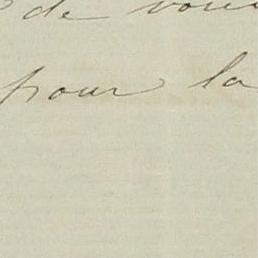 de vous
pour la